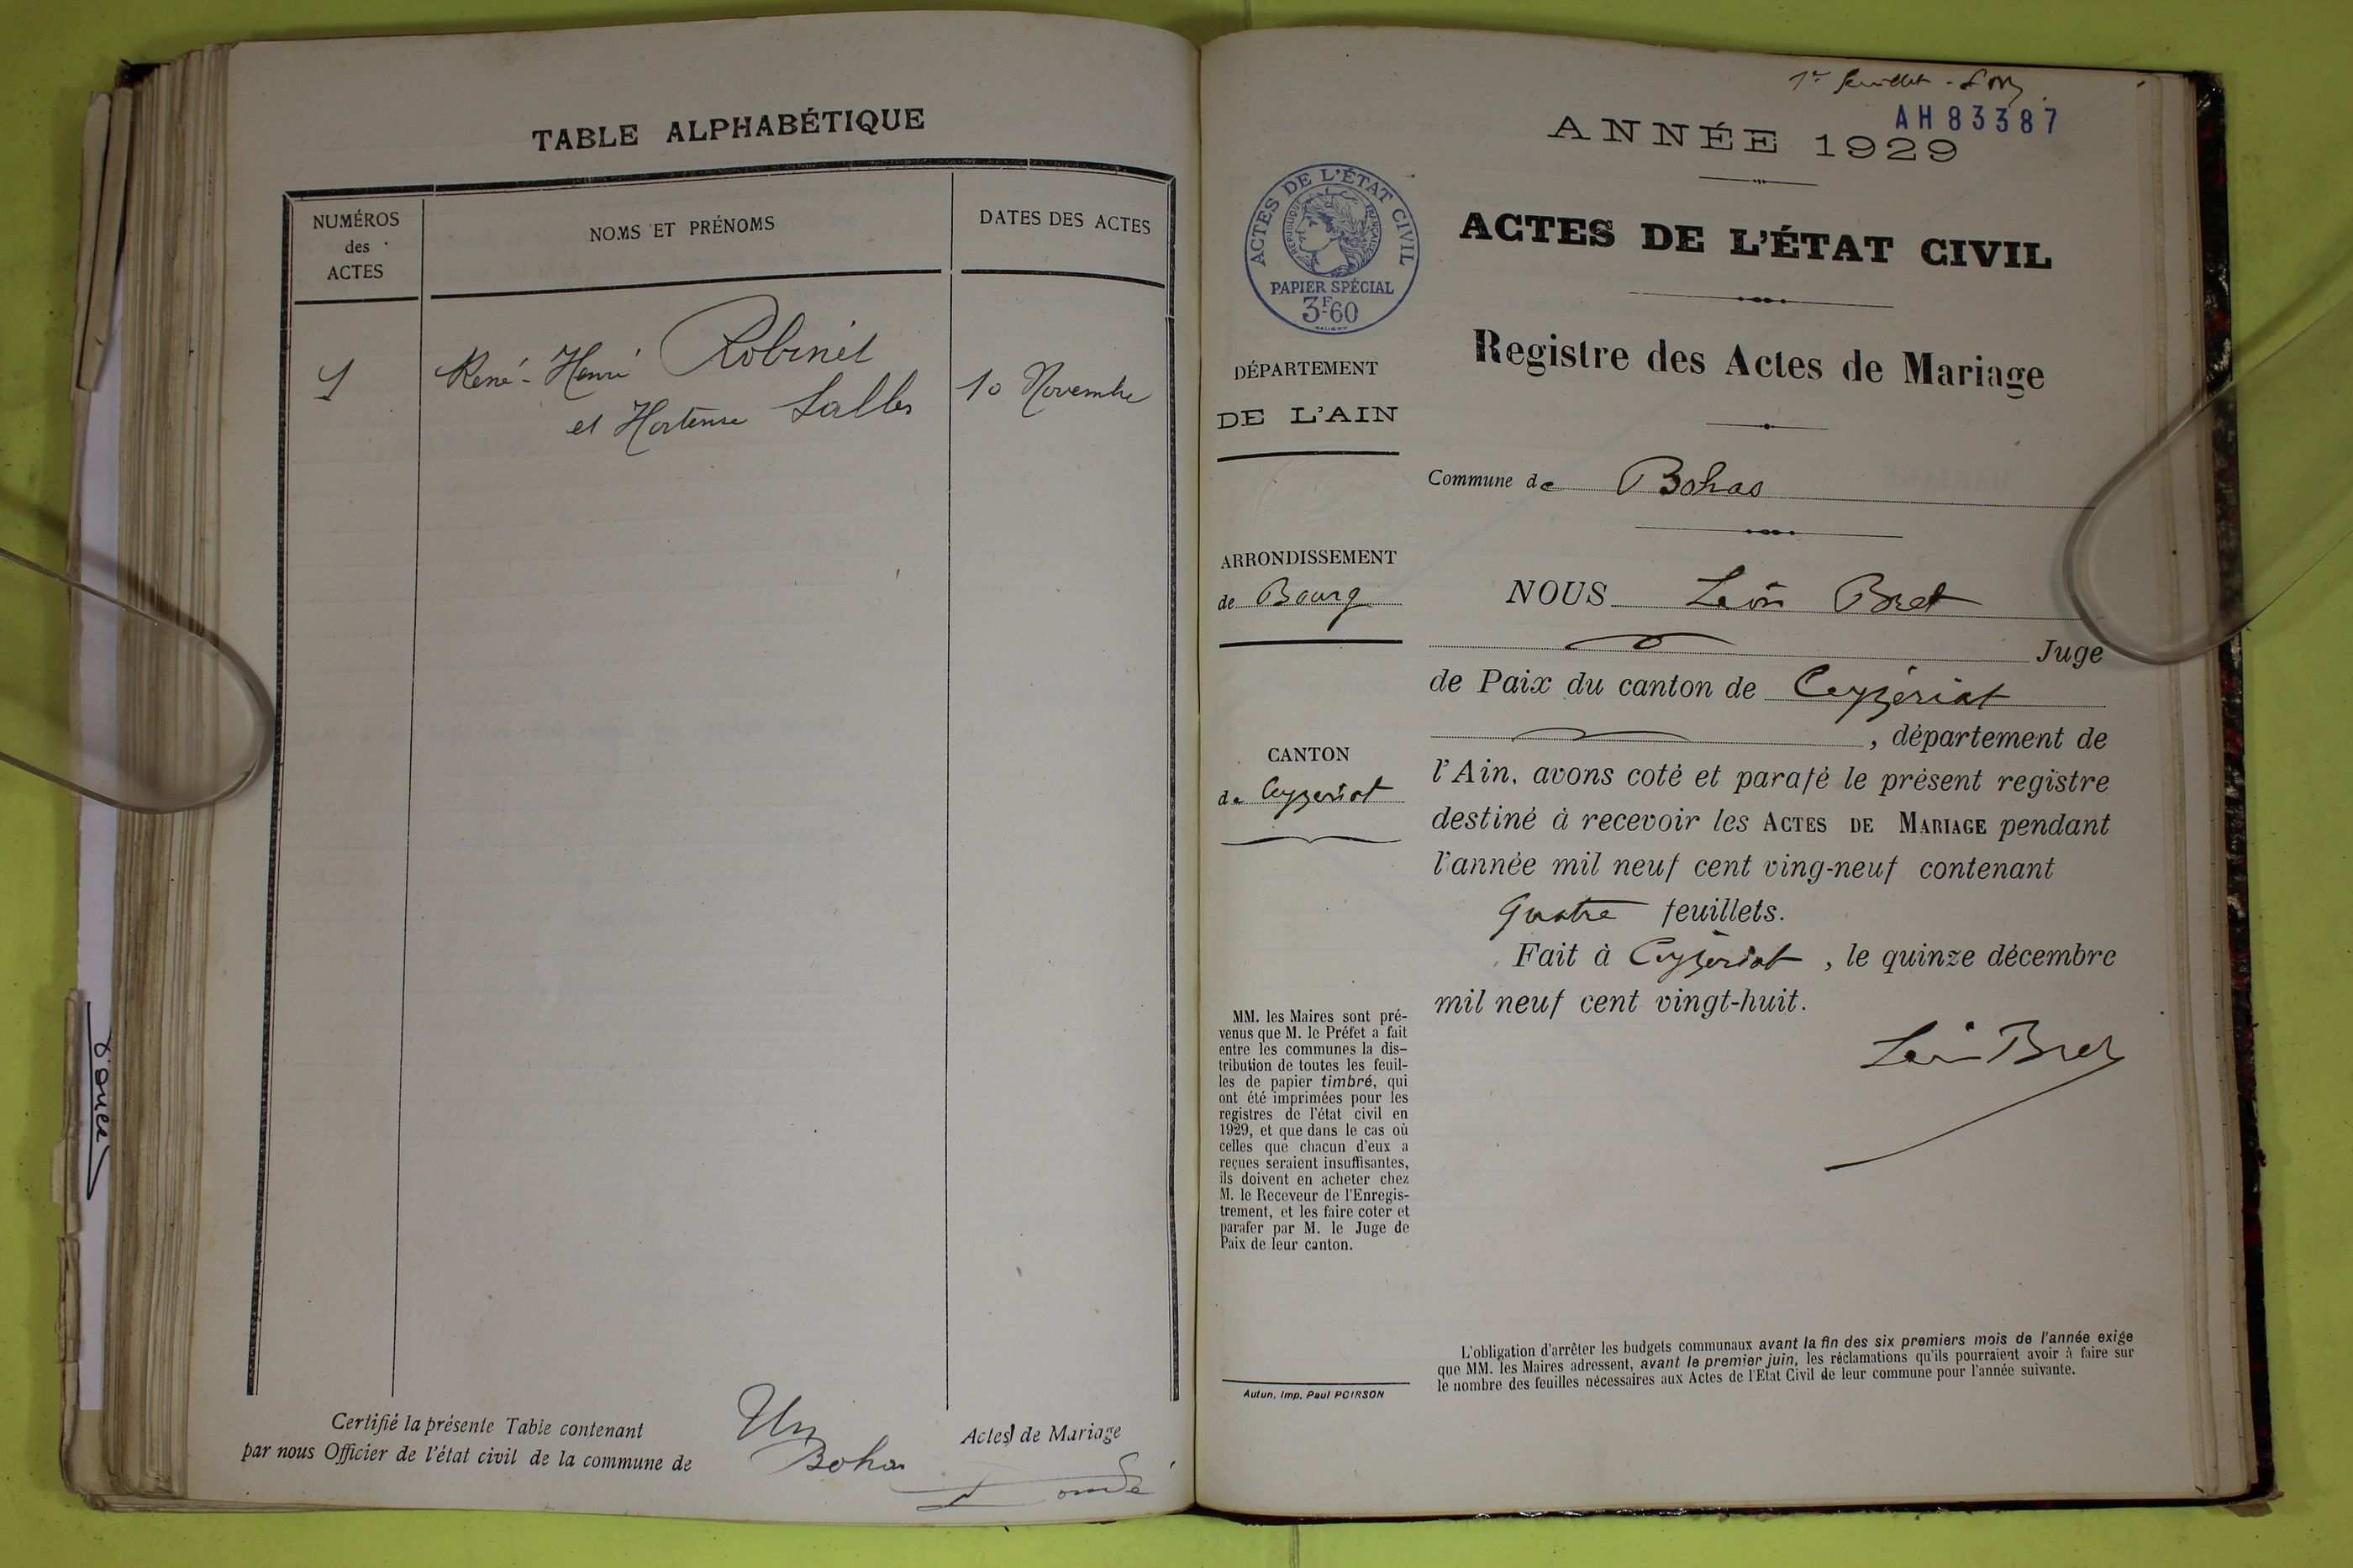 TABLE ALPHABÉTIQUE
NUMÉROS
des
ACTES
NOMS ET PRÉNOMS
DATES DES ACTES
1
René-Henri Robinet
et Hortense Salles
10 Novembre
Certifié la présente Table contenant Un Actes de Mariage
par nous Officier de l'état civil de la commune de Bohas
1er feuillet
AH 83387
ANNÉE 1929
ACTES DE L'ÉTAT CIVIL
RÉPUBLIQUE FRANÇAISE
PAPIER SPÉCIAL
3F60
ACTES DE L'ÉTAT CIVIL
Registre des Actes de Mariage
DÉPARTEMENT
DE L'AIN
Commune de Bohas
ARRONDISSEMENT
de Bourg
CANTON
de Ceyzériat
NOUS Léon Bret
Juge
de Paix du canton de Ceyzériat
, département de
l'Ain, avons coté et parafé le présent registre
destiné à recevoir les ACTES DE MARIAGE pendant
l'année mil neuf cent ving-neuf contenant
quatre feuillets.
Fait à Ceyzériat, le quinze décembre
mil neuf cent vingt-huit.
Léon Bret
MM. les Maires sont pré-
venus que M. le Préfet a fait
entre les communes la dis-
tribution de toutes les feuil-
les de papier timbré, qui
ont été imprimées pour les
registres de l'état civil en
1929, et que dans le cas où
celles que chacun d'eux a
reçues seraient insuffisantes,
ils doivent en acheter chez
M. le Receveur de l'Enregis-
trement, et les faire coter et
parafer par M. le Juge de
Paix de leur canton.
Autun, Imp. Paul POIRSON
L'obligation d'arrêter les budgets communaux avant la fin des six premiers mois de l'année exige
que MM. les Maires adressent, avant le premier juin, les réclamations qu'ils pourraient avoir à faire sur
le nombre des feuilles nécessaires aux Actes de l'Etat Civil de leur commune pour l'année suivante.